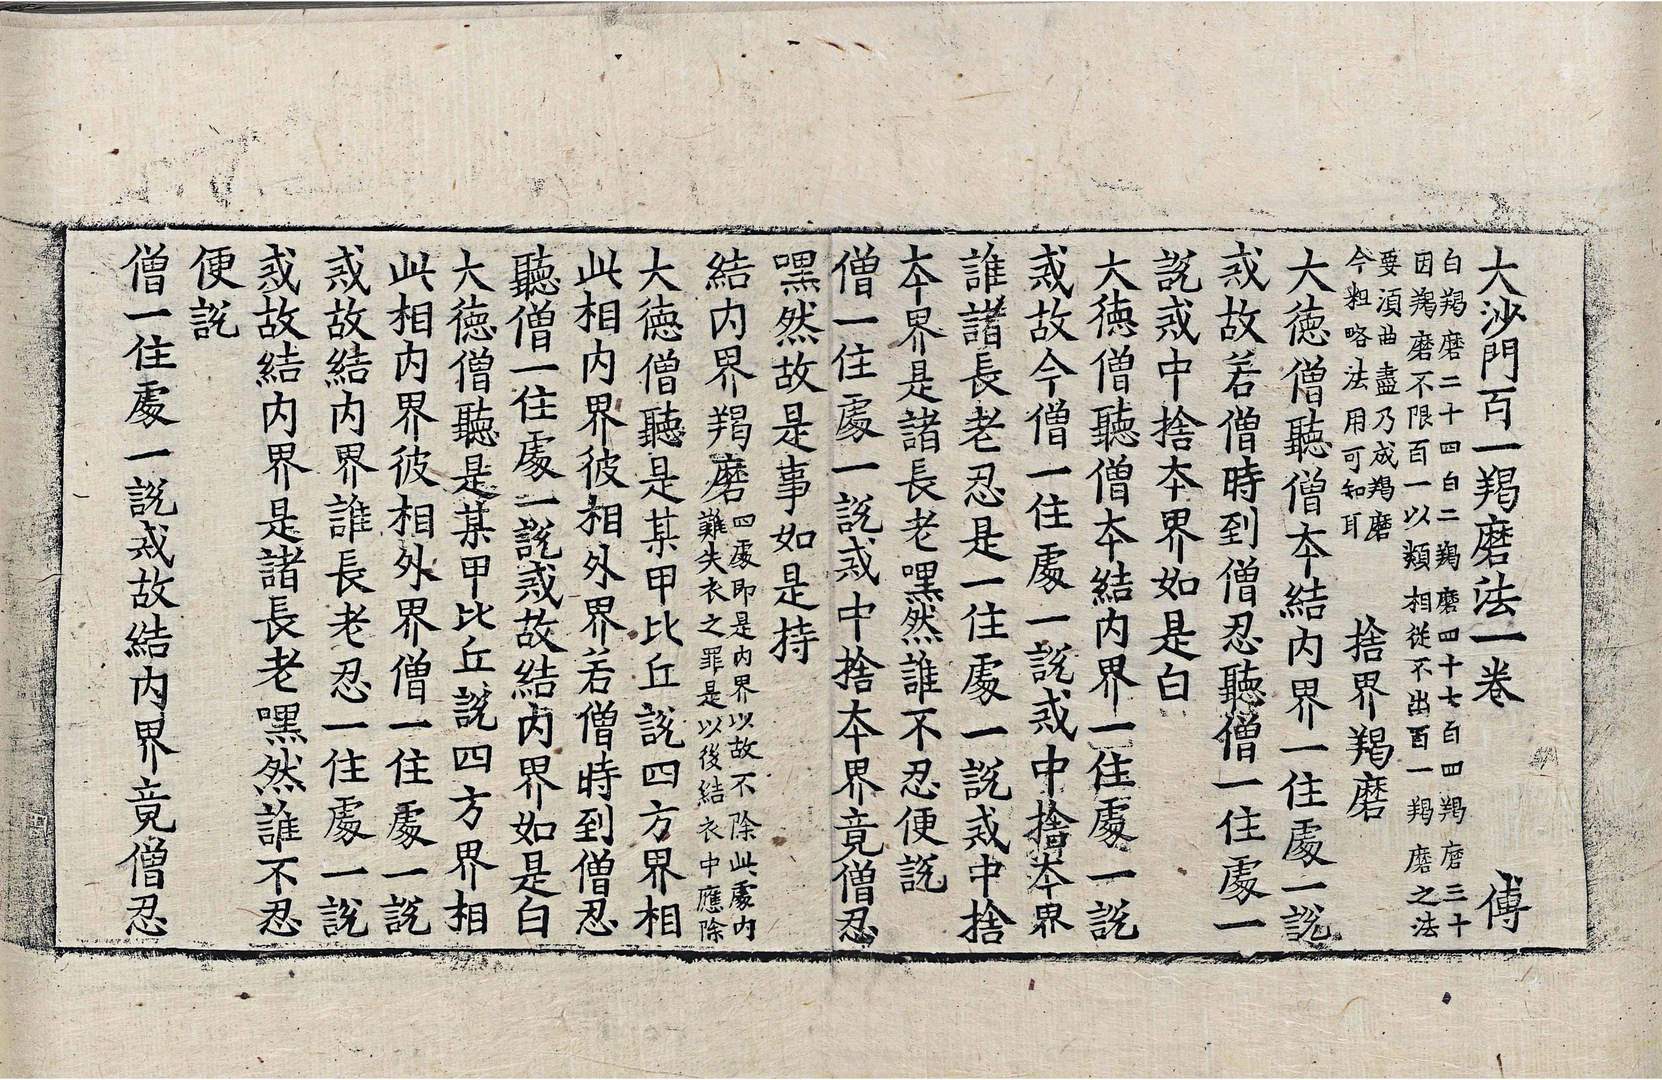 大沙門百一羯磨法一卷 傅
白羯磨二十四白二羯磨四十七白四羯磨三十
因羯磨不限百一以類相從不出百一羯磨之法
要湏曲盡乃成羯磨
今粗略法用可知耳 捨界羯磨
大徳僧聽僧夲結内界一住處一説
戒故若僧時到僧忍聽僧一住處一
説戒中捨夲界如是白
大徳僧聽僧夲結内界一住處一説
戒故今僧一住處一説戒中捨夲界
誰諸長老忍是一住處一説戒中捨
夲界是諸長老嘿然誰不忍便説
僧一住處一説戒中捨夲界竟僧忍
嘿然故是事如是持
結内界羯磨 四處即是内界以故不除此處内
難失衣之罪是以後結衣中應除
大徳僧聽是某甲比丘説四方界相
此相内界彼相外界若僧時到僧忍
聽僧一住處一説戒故結内界如是白
大徳僧聽是某甲比丘説四方界相
此相内界彼相外界僧一住處一説
戒故結内界誰長老忍一住處一説
戒故結内界是諸長老嘿然誰不忍
便説
僧一住處一説戒故結内界竟僧忍